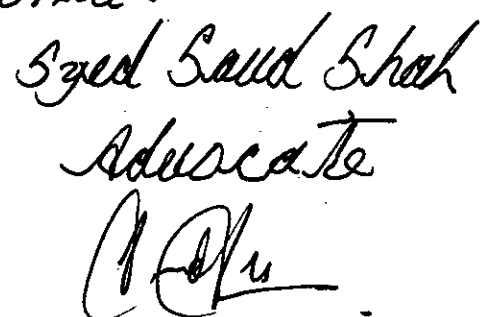 Syed Saud Shah
Advocate